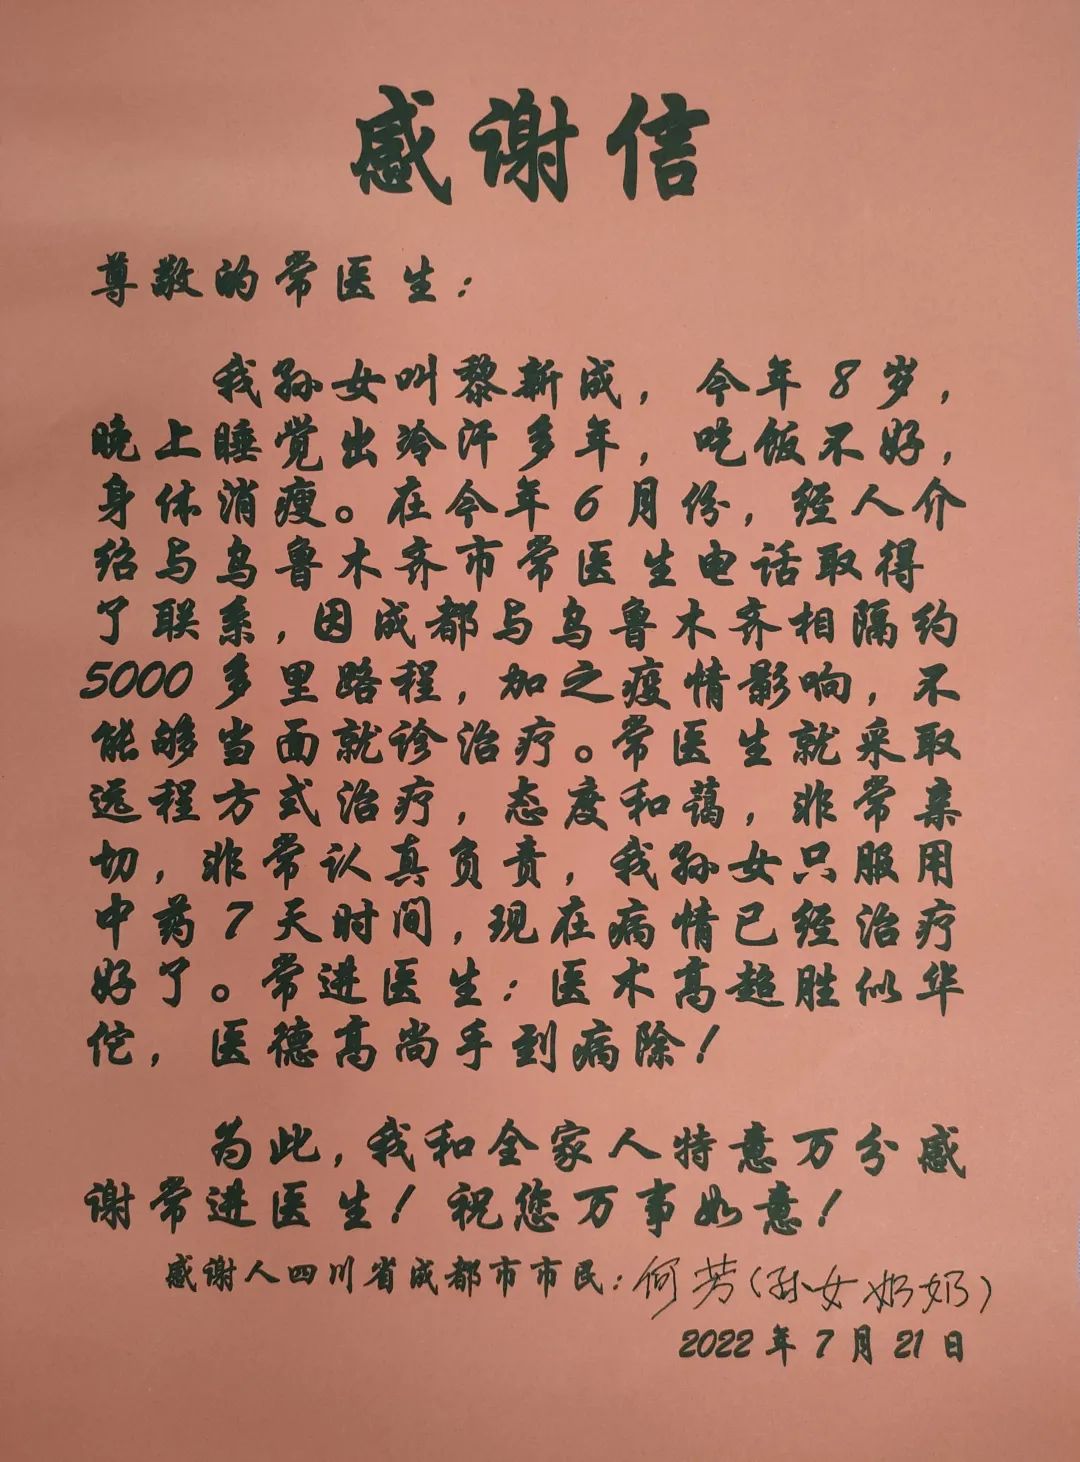 感谢信
尊敬的常医生：
我孙女叫黎新成，今年8岁，
晚上睡觉出冷汗多年，吃饭不好，
身体消瘦。在今年6月份，经人介
绍与乌鲁木齐市常医生电话取得
了联系，因成都与乌鲁木齐相隔约
5000多里路程，加之疫情影响，不
能够当面就诊治疗。常医生就采取
远程方式治疗，态度和蔼，非常亲
切，非常认真负责，我孙女只服用
中药7天时间，现在病情已经治疗
好了。常进医生：医术高超胜似华
佗，医德高尚手到病除！
为此，我和全家人特意万分感
谢常进医生！祝您万事如意！
感谢人四川省成都市市民：何芳（孙女奶奶）
2022年7月21日